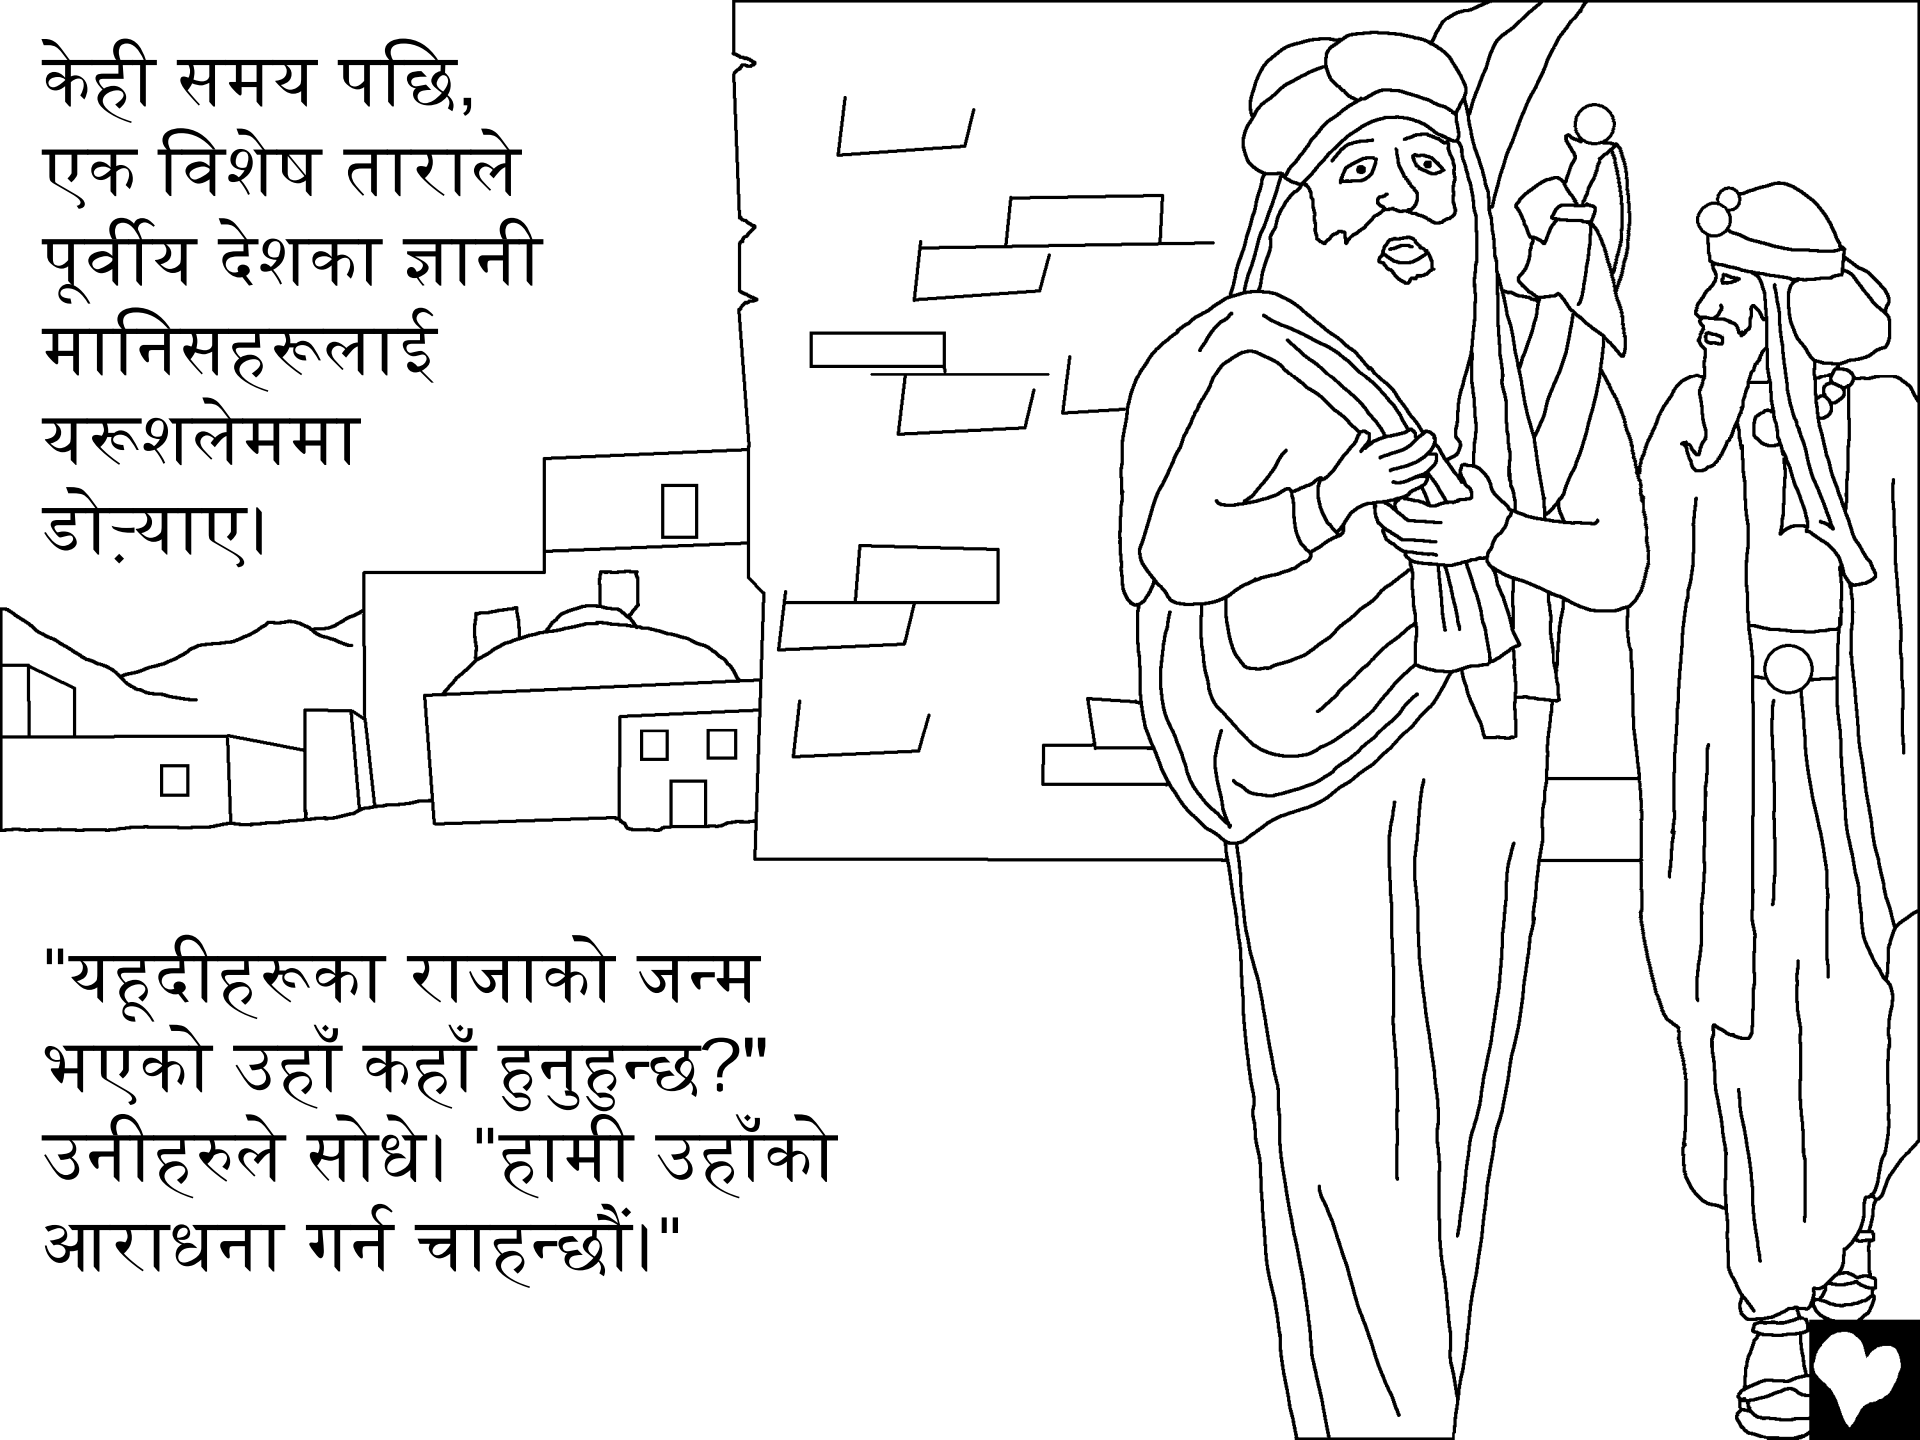 केही समय पछि,
एक विशेष ताराले
पूर्वीय देशका ज्ञानी
मानिसहरूलाई
यरूशलेममा
डोऱ्याए।
"यहूदीहरूका राजाको जन्म
भएको उहाँ कहाँ हुनुहुन्छ?"
उनीहरुले सोधे। "हामी उहाँको
आराधना गर्न चाहन्छौं।"